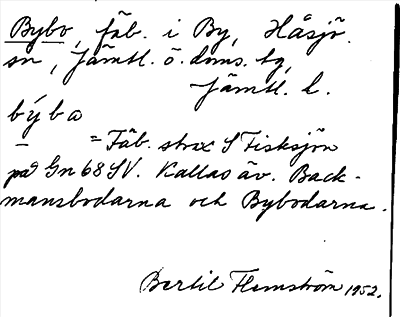 Bybo, fäb. i By, Håsjö
sn, Jämtl. ö. doms. tg,
Jämtl. l.
býba
= Fäb. strax S Fisksjön
på Gn 68 SV. Kallas äv. Back-
mansbodarna och Bybodarna.
Bertil Flemström 1952.